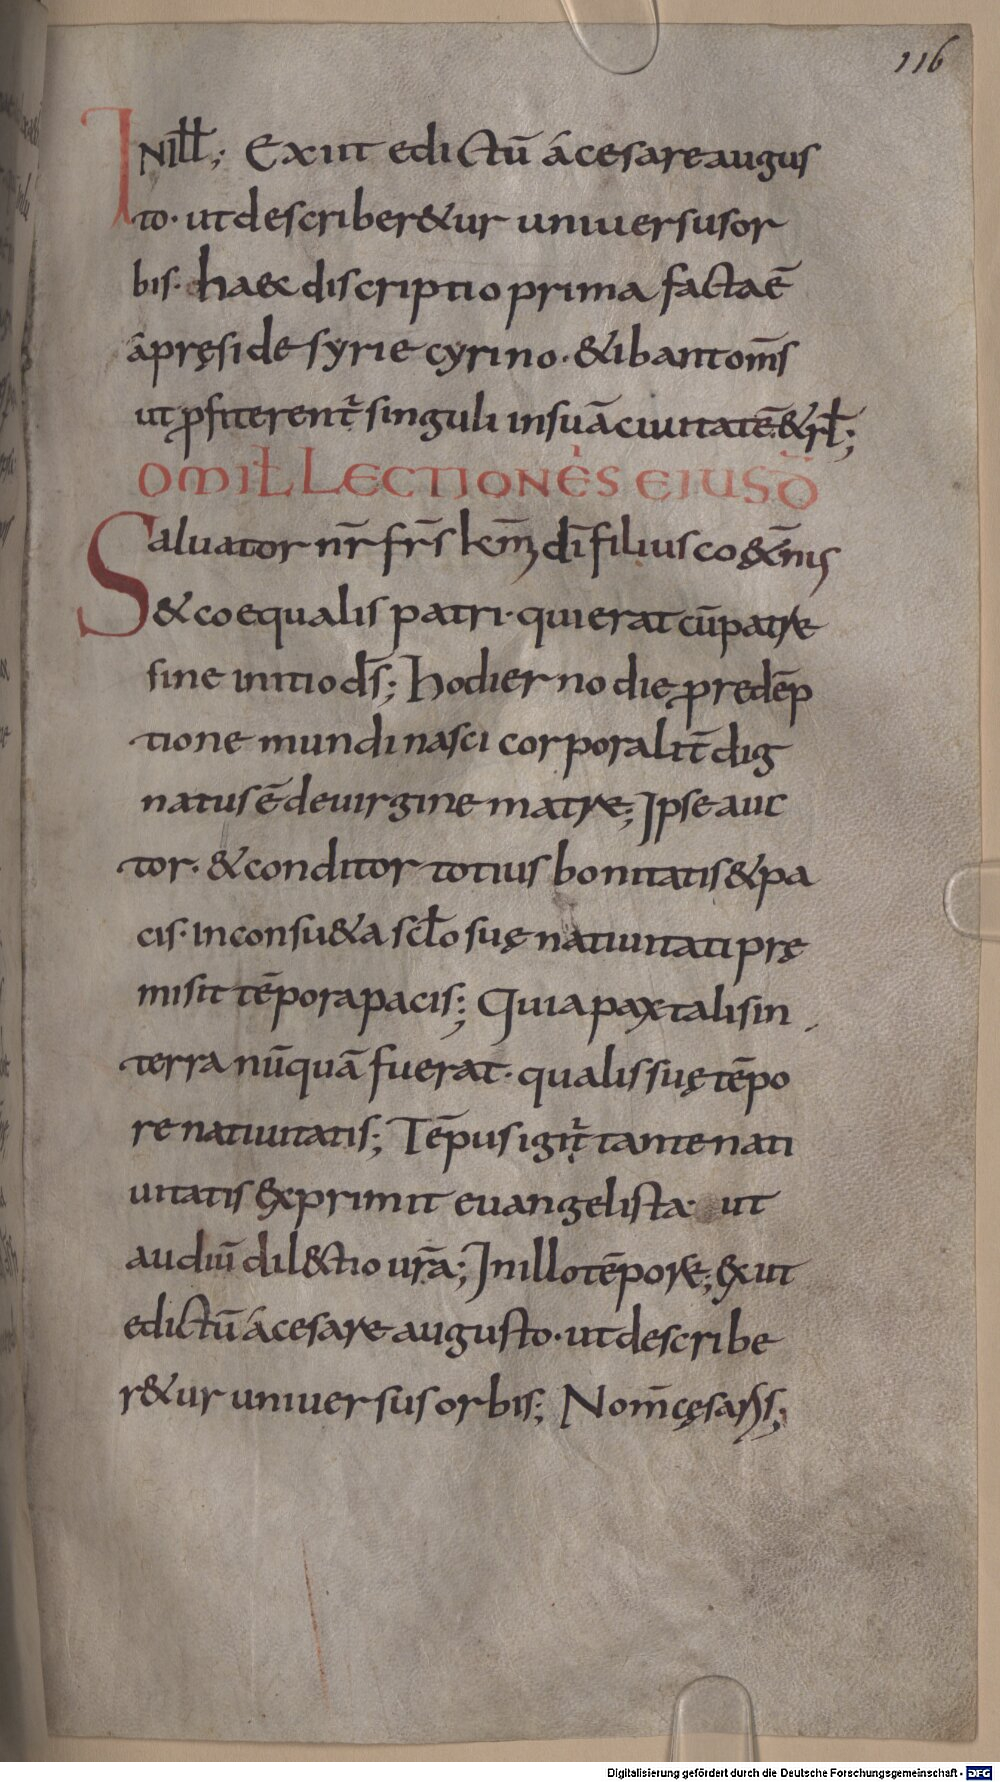 116
IN ILł; Exiit edictū á cesare augus
to· ut describer&ur uniuersus or
bis· haec discriptio prima facta ē
á pręside syrie cyrino· & ibant om̄s
ut ꝓfiterent᷑ singuli in suā ciuitatē & rł;
OMIŁ LECTIONES EIUSD̄
Saluator nr̄ frs̄ km̄ dī filius co&̨nus
& coequalis patri· qui erat cū patre
sine initio ds̄; Hodierno die ꝓ redēp
tione mundi nasci corporalit̄ dig
natus ē de uirgine matre; Ipse auc
tor· & conditor totius bonitatis & pa
cis· inconsu&a scło suę natiuitati prę
misit tēpora pacis; Quia pax talis in
terra nūquā fuerat· qualis suę tēpo
re natiuitatis; Tēpus igit᷑ tantę nati
uitatis exprimit euangelista· ut
audiuī dil&ctio urā; In illo tēpore; exiit
edictū á cesare augusto· ut describe
r&ur uniuersus orbis; Nom̄ cęsaris;
Digitalisierung gefördert durch die Deutsche Forschungsgemeinschaft - DFG